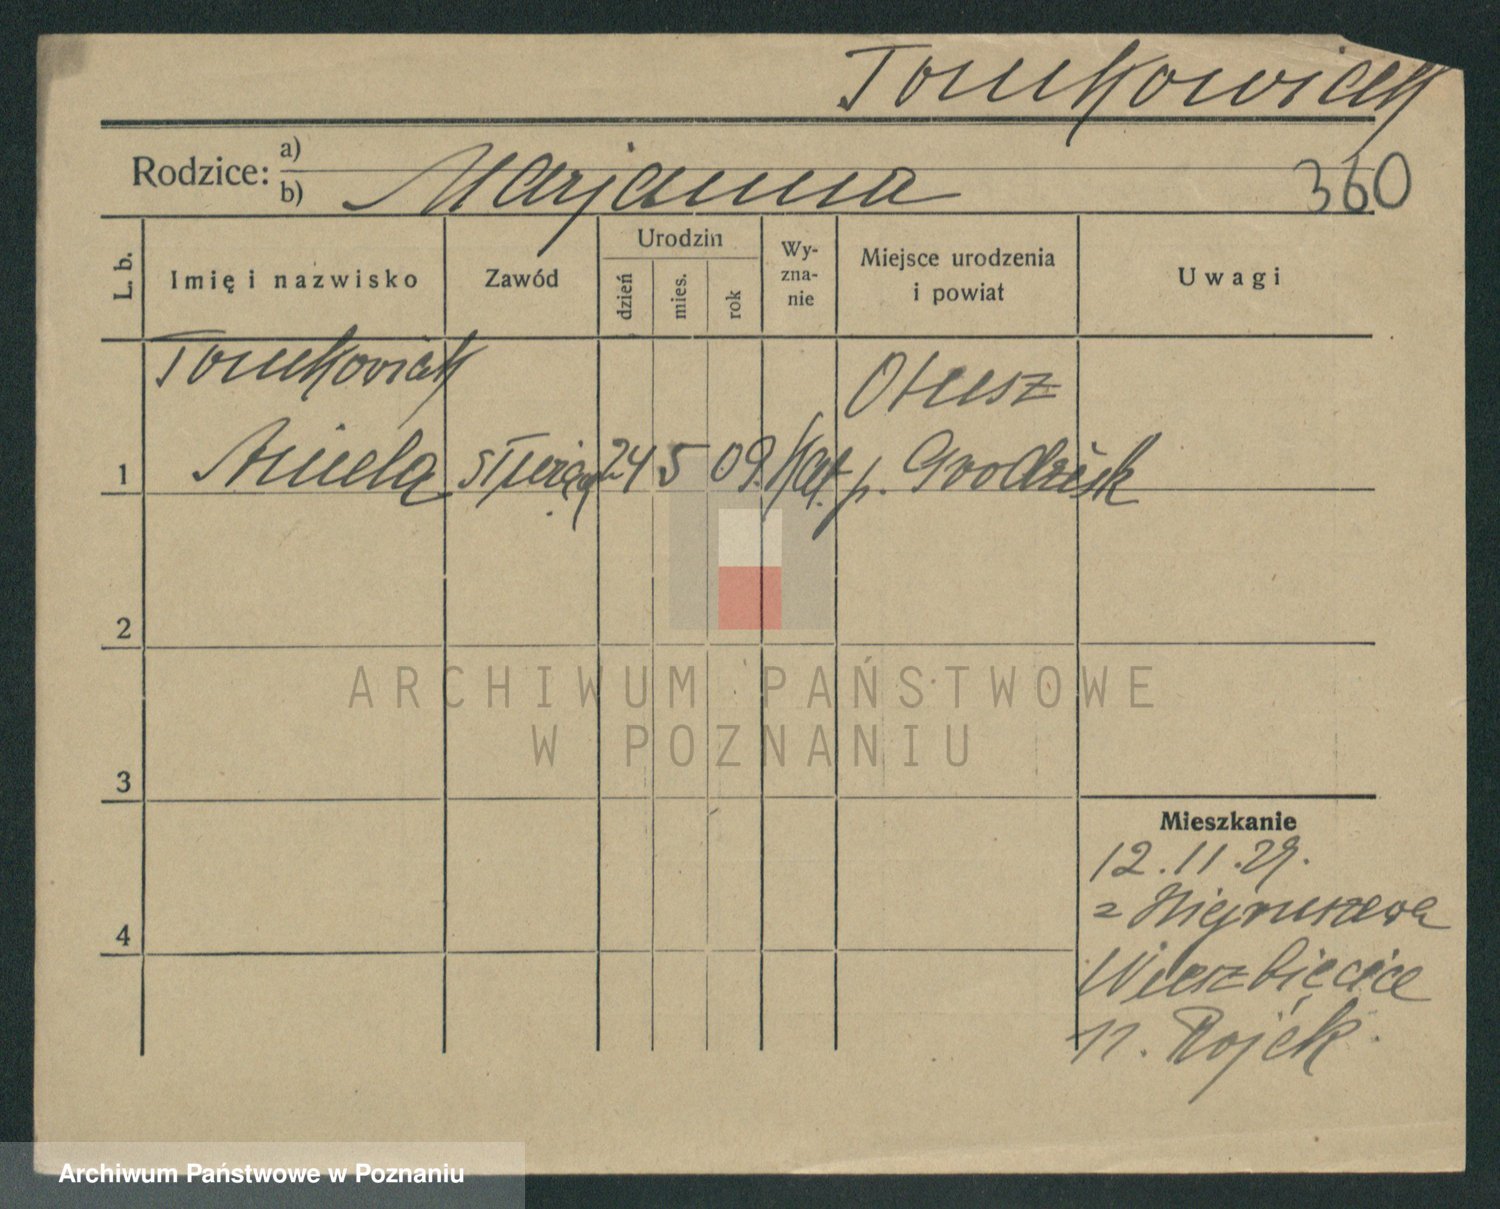 Tomkowiak
Rodzice: a)
b) Marjanna 360
L. b. Imię i nazwisko Zawód Urodzin dzień mies. rok Wyznanie Miejsce urodzenia i powiat Uwagi
Tomkowiak Otusz
1 Aniela służąca 24 5 09. kat. p. Grodzisk
2
ARCHIWUM PAŃSTWOWE
W POZNANIU
3
Mieszkanie
12.11.29.
z
4
Wierzbięcice
11. Rojek.
Archiwum Państwowe w Poznaniu